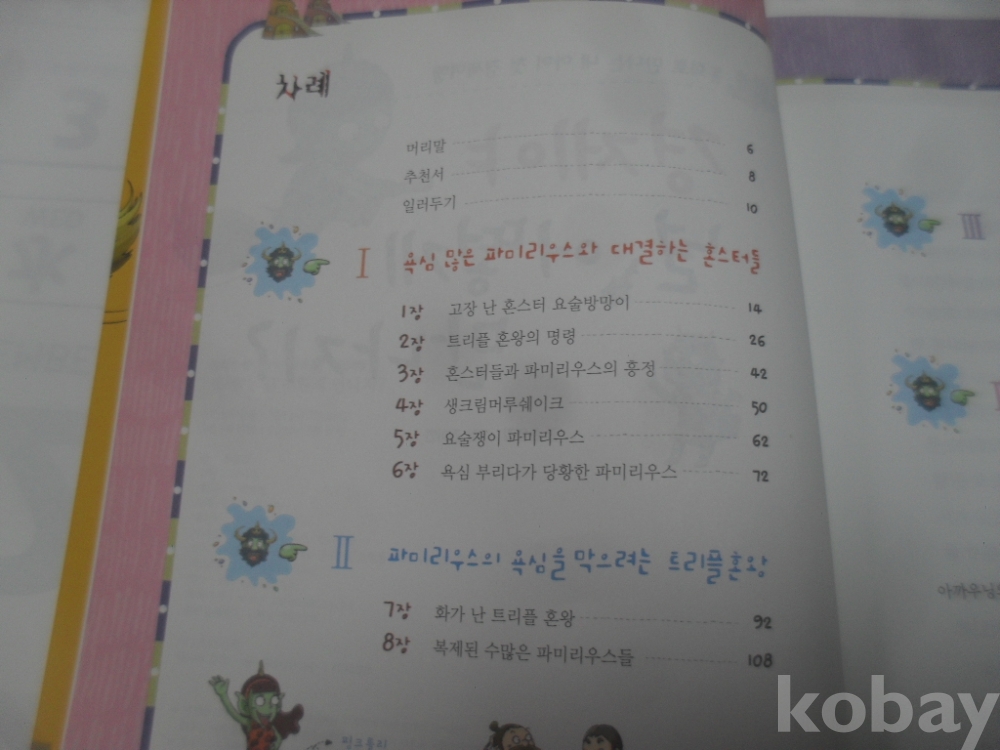 차례
머리말 6
추천서 8
일러두기 10
I 욕심 많은 파미리우스와 대결하는 혼스터들
1장 고장 난 혼스터 요술방망이 14
2장 트리플 혼왕의 명령 26
3장 혼스터들과 파미리우스의 흥정 42
4장 생크림머루쉐이크 50
5장 요술쟁이 파미리우스 62
6장 욕심 부리다가 당황한 파미리우스 72
II 파미리우스의 욕심을 막으려는 트리플혼왕
7장 화가 난 트리플 혼왕 92
8장 복제된 수많은 파미리우스들 108
III
kobay